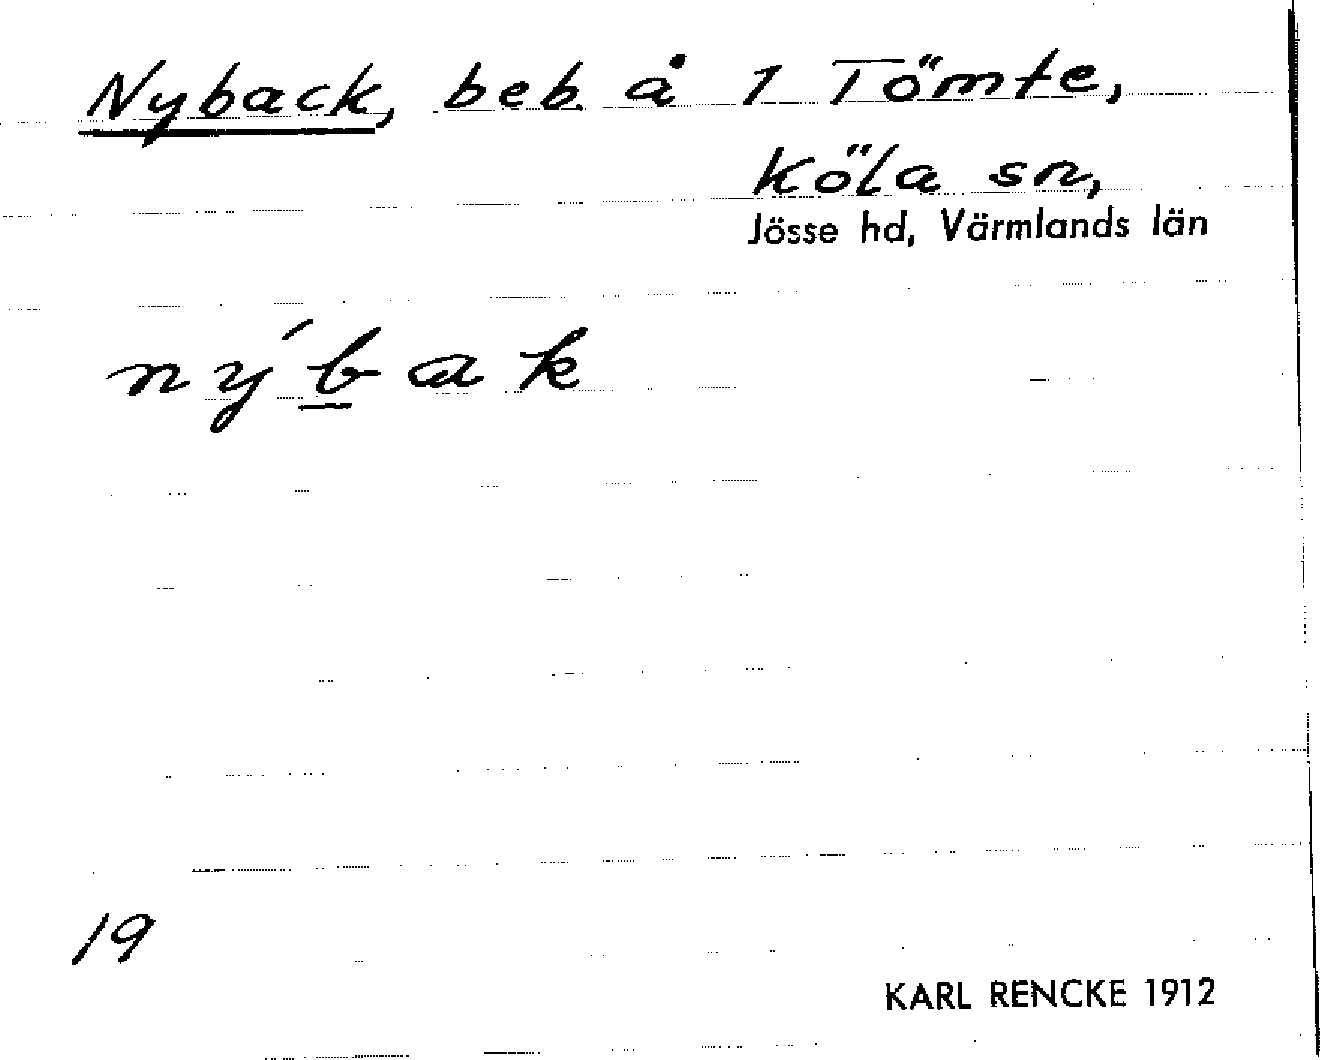 Nyback, beb. å 1 Tömte,
Köla sn,
Jösse hd, Värmlands län
nýbak
19
KARL RENCKE 1912